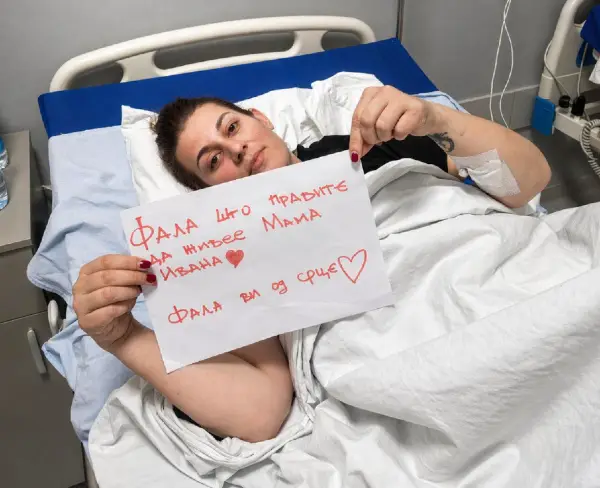 Фала што правите
да живее Мама
Ивана
Фала ви од срце